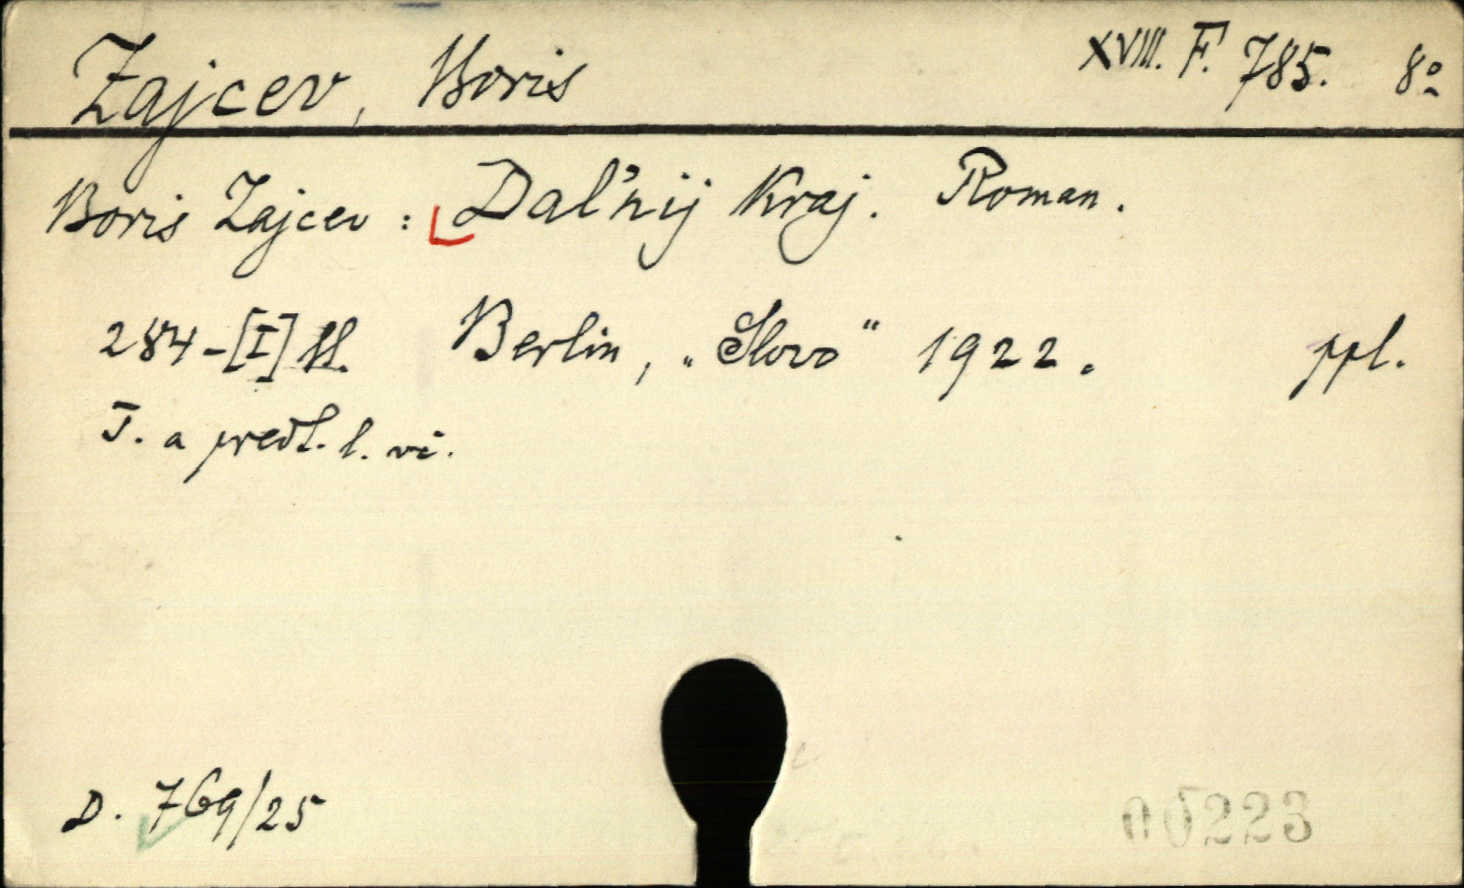 Zajcev, Boris XVIII. F. 785. 8°
Boris Zajcev: Dal'nij Kraj. Roman.
284-[I] ss. Berlin, „Slovo“ 1922. ppl.
T. a předt. l. vč.
D. 769/25
00223